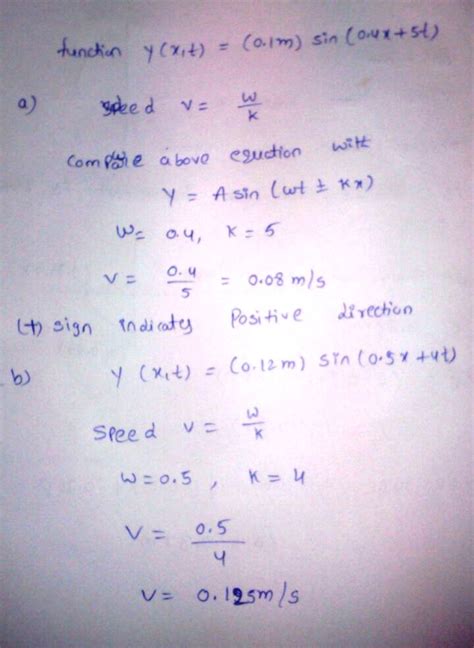 function y(x,t) = (0.1m) sin (0.4x+5t)
a) speed v = w/k
compare above equction with
Y = A sin (wt ± kx)
W = 0.4, k = 5
v = 0.4/5 = 0.08 m/s
(+) sign indicates positive direction
b) y (x,t) = (0.12m) sin (0.5x + 4t)
speed v = w/k
W = 0.5 , k = 4
V = 0.5/4
V = 0.125m/s